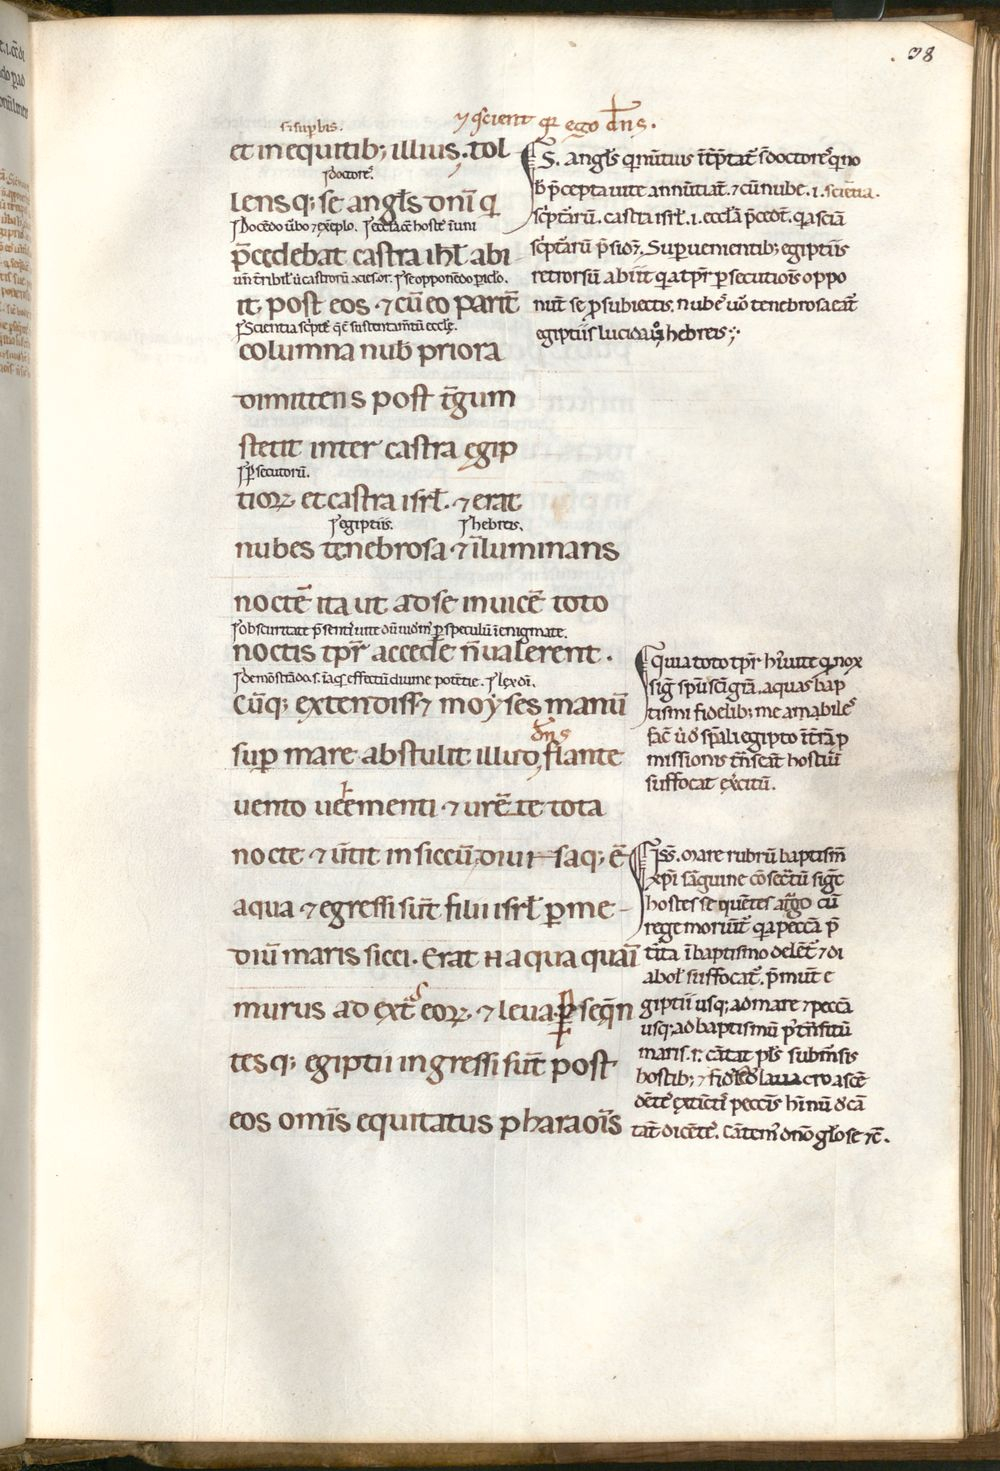 38
⁊ scient qr ego dn̄s.
.i. suꝑbis.
et in equitib; illius. tol
.i. doctore᷒.
lensq; se angl̄s dn̄i q̄
.i. Docēdo ūbo ⁊ exēplo. .i. ecclā cē hoste᷒
p̄cedebat castra ihl̄ abi
.i. se opponēdo
it. post eos. ⁊ cū eo parit̄
.i. Scientia
columna nub̄ priora
dimittens post t̄gum
stetit inter castra egip
.i. ꝑsecutorū.
tioꝝ, et castra isrl̄. ⁊ erat
.i. egiptiis. .i. hebreis.
nubes tenebrosa ⁊ illuminans
noctē ita ut ad se inuicē toto
.i. obscuritate p̄sentis uite ꝑ speculū ī enigmate.
noctis tp̄r accede n̄ ualerent.
effectū diuine potētie.
Cūq; extendiss; moyses manū
dn̄s
suꝑ mare abstulit illud, flante
uento ueementi ⁊ urēte tota
nocte ⁊ ūtit in siccū, diuisaq; ē
aqua ⁊ egressi sūt filii isrl̄ ꝑ me
diū maris sicci. Erat n̄ aqua quasi
murus ad ext̄ᷤ eoꝝ, ⁊ leua. ꝑseqn̄
tesq; egiptii ingressi sūt post
eos om̄is equitatus pharaōis
S. angl̄s q̄ nūtius īt̄p̄tat᷒ .s. doctore᷒ q̄ no
b̄ p̄cepta uite annūtiāt. ⁊ cū nube .i. sciētia.
sc̄ptārū. castra isrl̄ .i. ecclā p̄cedt̄. q̄a sciā
sc̄ptārū Suꝑuenientib; egiptiis
retrorsū abiit q̄a tp̄r ꝑsecutiōis oppo
nūt se ꝓ subiectis. nube᷒ uō tenebrosa eat̄
egiptiis lucida hebreis;
quia toto tp̄r hui᷒ uite q̄ nox
sig᷒ sp̄u sc̄i grā. aquas bap
tismi fidelib; meamabile᷒
fac̄ sp̄ali egipto
missionis hostiū
suffocat ex̄citū.
Iss̄. mare rubrū baptism̄
xp̄i sāguine cōsec̄tū sig᷒
hostes seq̄uētes a t̄go cū
rege moriūt᷒ q̄a peccā p̄
t̄ita ī baptismo delēt᷒ ⁊ di
abol᷒ suffocat᷒. p̄mūt e
giptii usq; ad mare ⁊ peccā
usq; ad baptismū
maris. cātat pl̄s submsis
hostib; ⁊ fidel̄ lauacro ascē
dēte᷒ extīcti᷒ peccīs himnū
tāt dicēte᷒. Cātem᷒ dn̄o gl̄ose ⁊c̄.